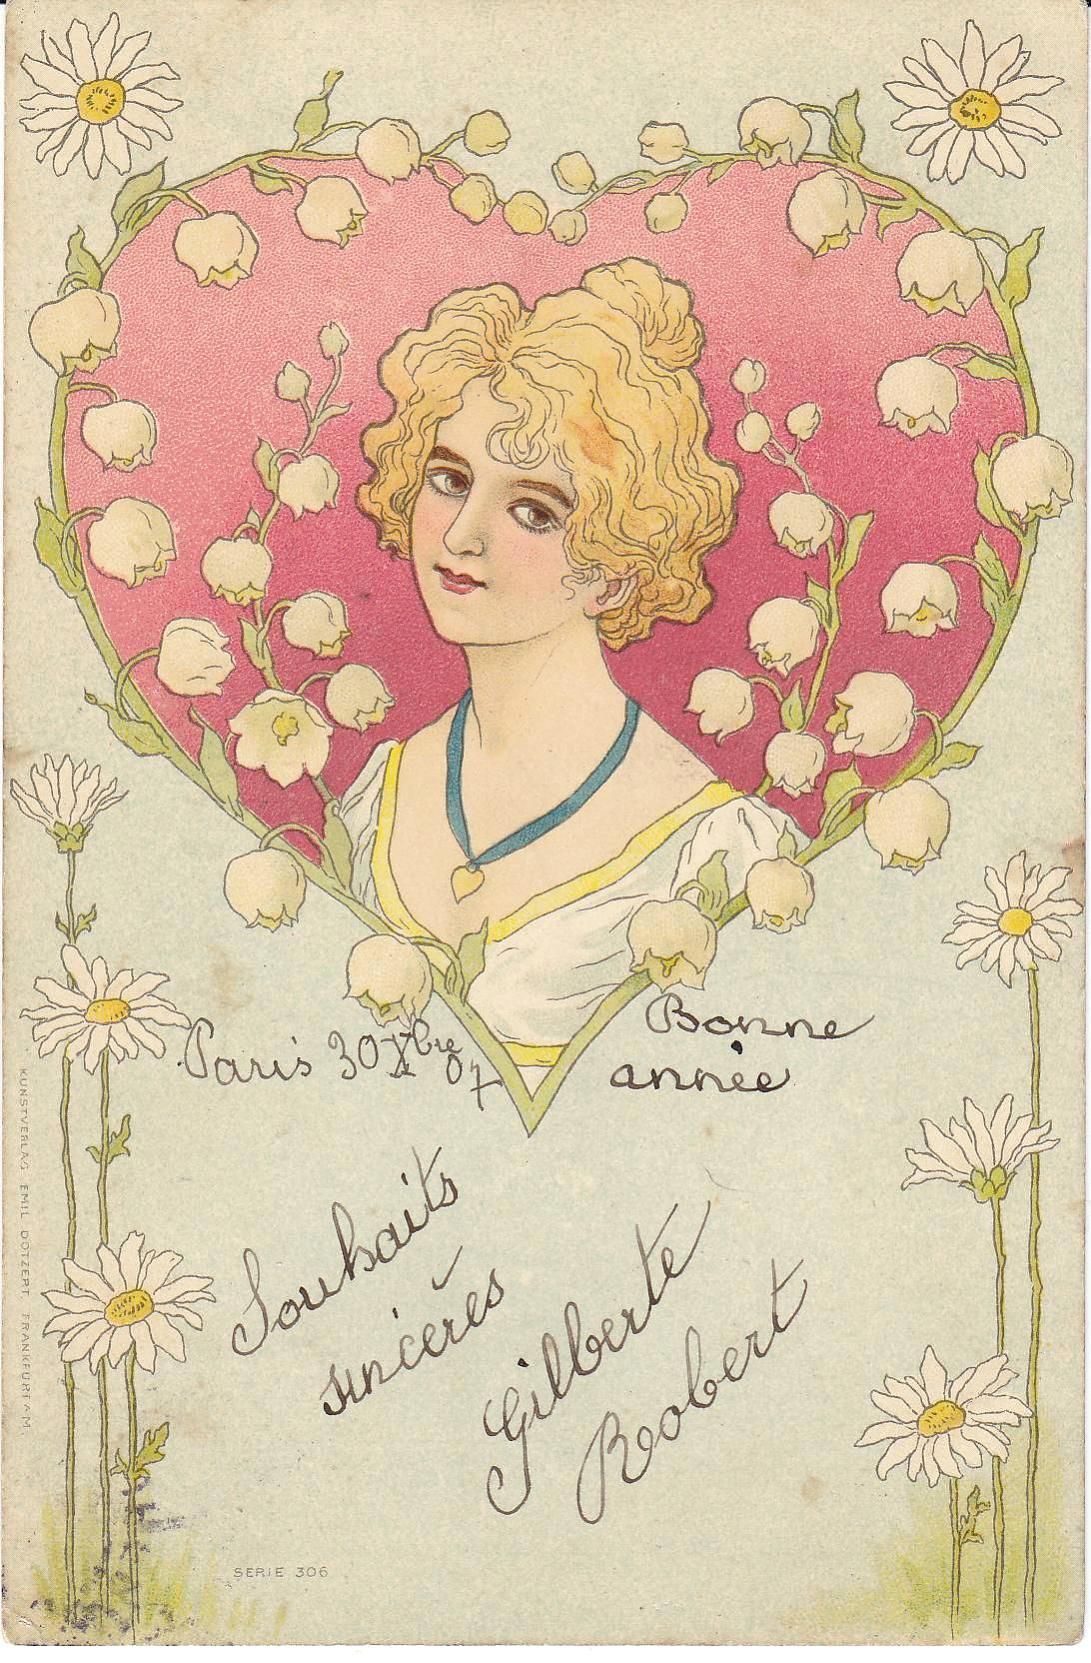 Paris 30 Xbre 07
Bonne
année
Souhaits
sincères
Gilberte
Robert
KUNSTVERLAG EMIL DOTZERT FRANKFURT A M.
SERIE 306